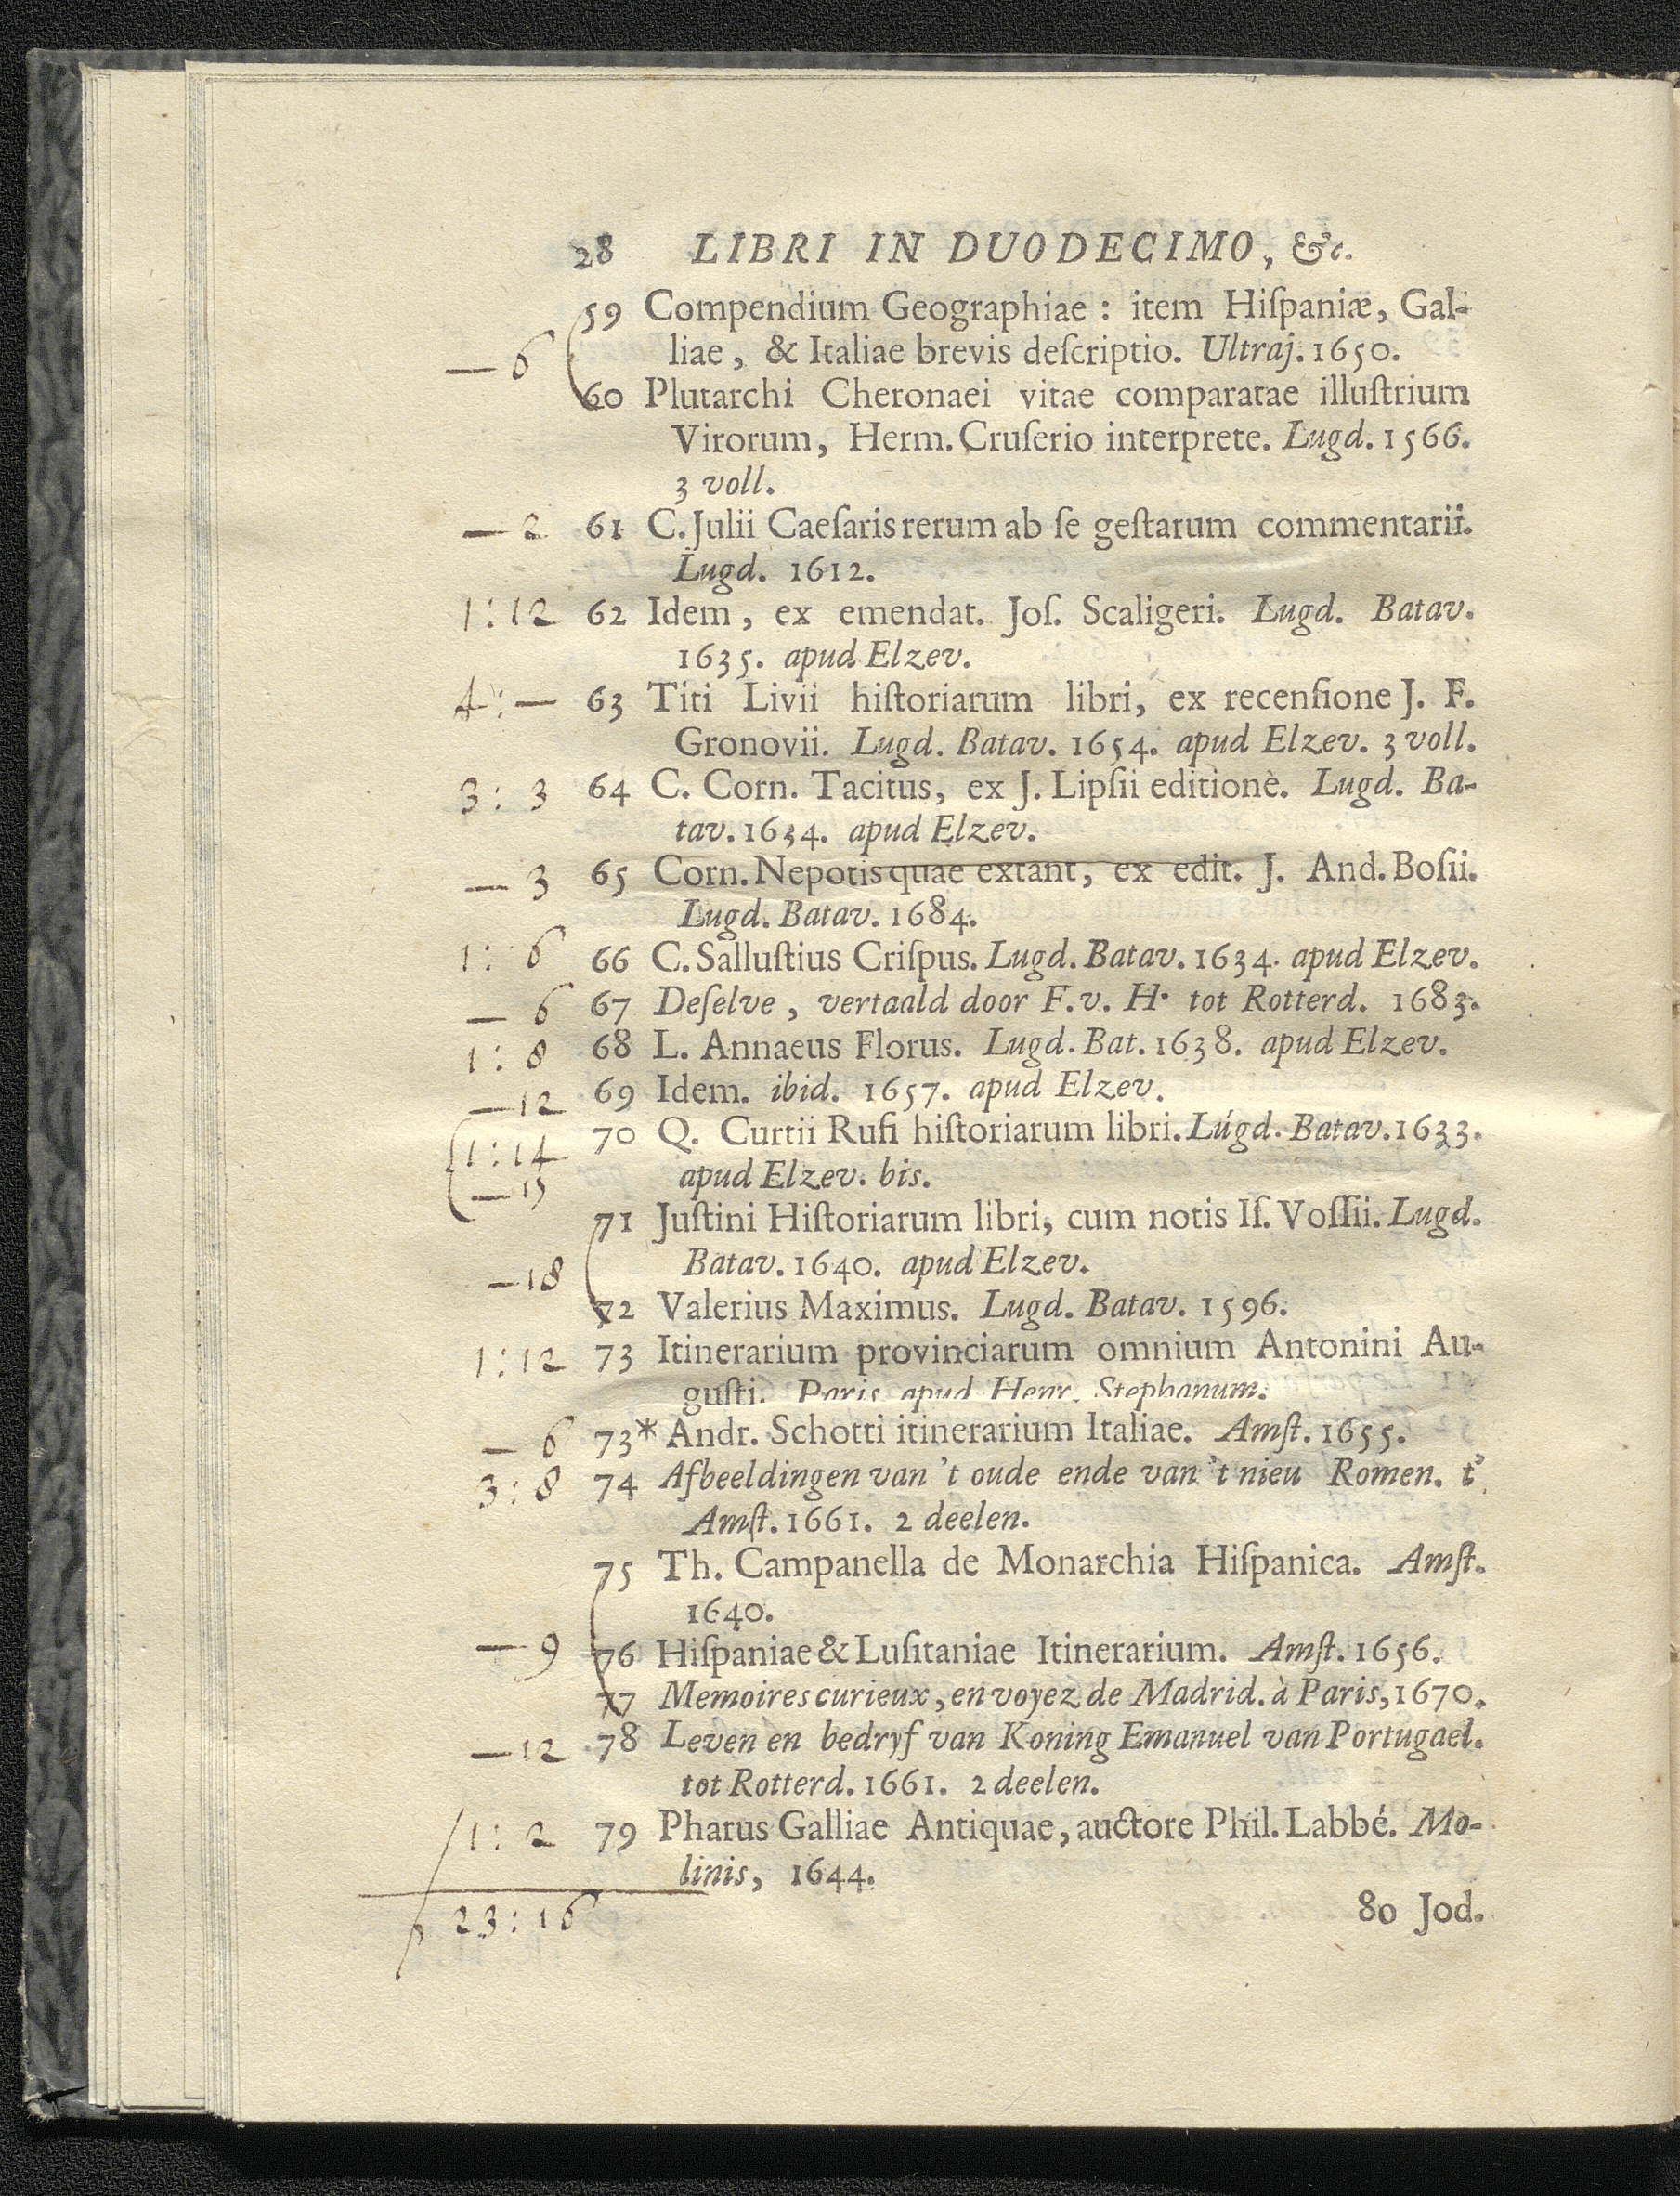 28 LIBRI IN DUODECIMO, &c.
59 Compendium Geographiae : item Hiſpaniæ, Gal-
— 6 liae, & Italiae brevis deſcriptio. Ultraj. 1650.
60 Plutarchi Cheronaei vitae comparatae illuſtrium
Virorum, Herm. Cruſerio interprete. Lugd. 1566.
3 voll.
— 2 61 C. Julii Caeſaris rerum ab ſe geſtarum commentarii.
Lugd. 1612.
1 : 12 62 Idem, ex emendat. Joſ. Scaligeri. Lugd. Batav.
1635. apud Elzev.
4 : — 63 Titi Livii hiſtoriarum libri, ex recenſione J. F.
Gronovii. Lugd. Batav. 1654. apud Elzev. 3 voll.
3 : 3 64 C. Corn. Tacitus, ex J. Lipſii editione. Lugd. Ba-
tav. 1634. apud Elzev.
— 3 65 Corn. Nepotis quae extant, ex edit. J. And. Boſii.
Lugd. Batav. 1684.
1 : 6 66 C. Salluſtius Criſpus. Lugd. Batav. 1634. apud Elzev.
— 6 67 Deſelve, vertaald door F. v. H. tot Rotterd. 1683.
1 : 8 68 L. Annaeus Florus. Lugd. Bat. 1638. apud Elzev.
— 12 69 Idem. ibid. 1657. apud Elzev.
1 : 14 70 Q. Curtii Rufi hiſtoriarum libri. Lugd. Batav. 1633.
— 15 apud Elzev. bis.
71 Juſtini Hiſtoriarum libri, cum notis Iſ. Voſſii. Lugd.
— 18 Batav. 1640. apud Elzev.
72 Valerius Maximus. Lugd. Batav. 1596.
1 : 12 73 Itinerarium provinciarum omnium Antonini Au-
guſti. Paris. apud Henr. Stephanum.
— 6 73* Andr. Schotti itinerarium Italiae. Amſt. 1655.
3 : 8 74 Afbeeldingen van 't oude ende van 't nieu Romen. t'
Amſt. 1661. 2 deelen.
75 Th. Campanella de Monarchia Hiſpanica. Amſt.
1640.
— 9 76 Hiſpaniae & Luſitaniae Itinerarium. Amſt. 1656.
77 Memoires curieux, envoyez de Madrid. à Paris, 1670.
— 12 78 Leven en bedryf van Koning Emanuel van Portugael.
tot Rotterd. 1661. 2 deelen.
1 : 2 79 Pharus Galliae Antiquae, auctore Phil. Labbé. Mo-
linis, 1644.
23 : 16
80 Jod.